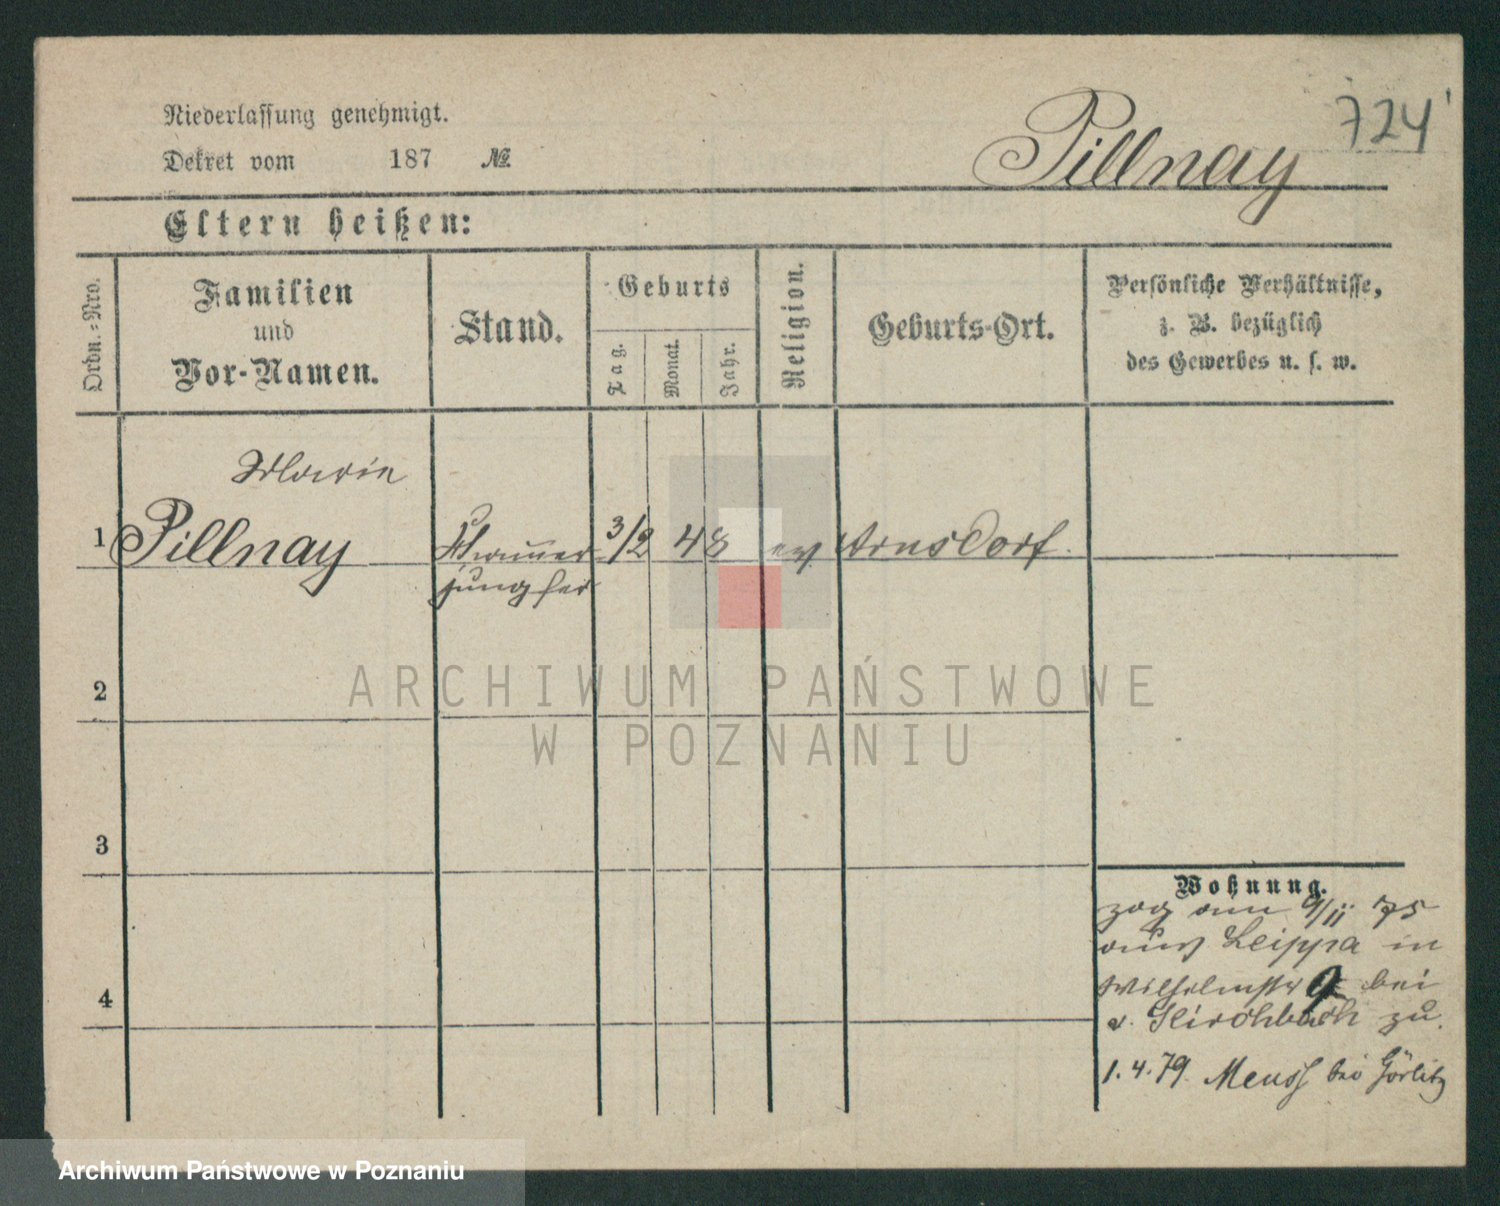 724
Niederlassung genehmigt.
Dekret vom 187 №
Pillnay
Eltern heißen:
Ordn.-Nro.
Familien
und
Vor-Namen.
Stand.
Geburts
Tag.
Monat.
Jahr.
Religion.
Geburts-Ort.
Persönliche Verhältnisse,
z. B. bezüglich
des Gewerbes u. s. w.
Marie
1 Pillnay Kammer 3/2 48 ev Arnsdorf.
jungfer
2
3
4
Wohnung.
zog am 9/11 75
aus Leippa in
Wilhelmstr 9 bei
v. Kirchbach zu.
1.4.79. bei Görlitz
ARCHIWUM PAŃSTWOWE
W POZNANIU
Archiwum Państwowe w Poznaniu